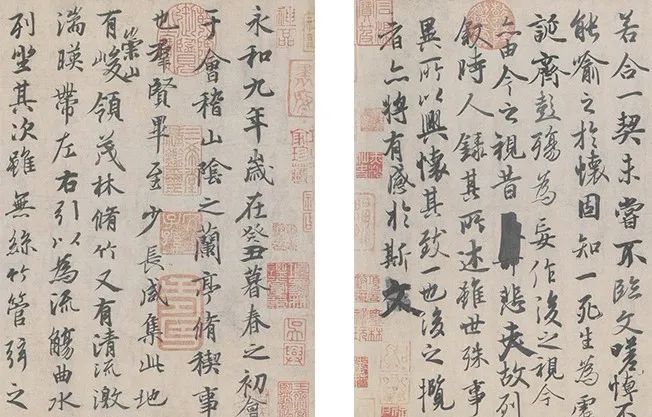 永和九年歲在癸丑暮春之初會
于會稽山陰之蘭亭脩稧事
也羣賢畢至少長咸集此地
有崇山峻領茂林脩竹又有清流激
湍暎帶左右引以為流觴曲水
列坐其次雖無絲竹管弦之
若合一契未嘗不臨文嗟悼不
能喻之於懷固知一死生為虛
誕齊彭殤為妄作後之視今
亦由今之視昔悲夫故列
敘時人錄其所述雖世殊事
異所以興懷其致一也後之攬
者亦將有感於斯文